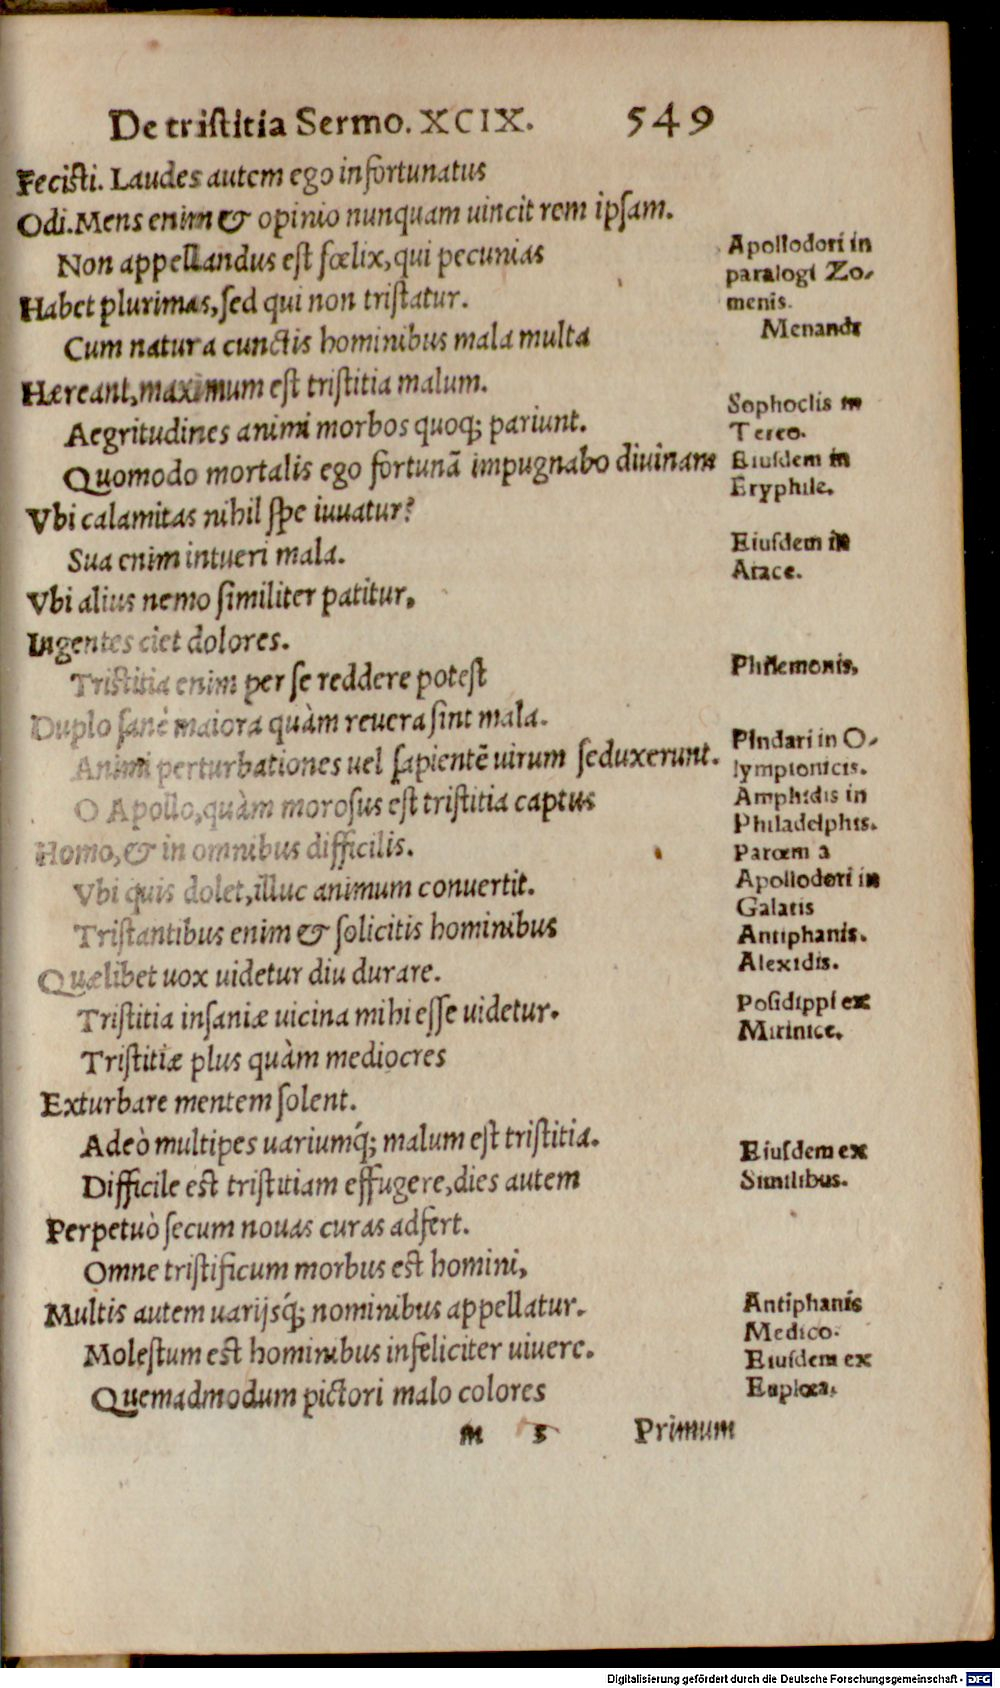 De tristitia Sermo. XCIX. 549
Fecisti. Laudes autem ego infortunatus
Odi. Mens enim & opinio nunquam uincit rem ipsam.
Non appellandus est fœlix, qui pecunias
Habet plurimas, sed qui non tristatur.
Cum natura cunctis hominibus mala multa
Hæreant, maximum est tristitia malum.
Aegritudines animi morbos quoq; pariunt.
Quomodo mortalis ego fortunā impugnabo diuinam
Vbi calamitas nihil spe iuuatur?
Sua enim intueri mala.
Vbi alius nemo similiter patitur,
Ingentes ciet dolores.
Tristitia enim per se reddere potest
Duplo sanè maiora quàm reuera sint mala.
Animi perturbationes uel sapientē uirum seduxerunt.
O Apollo, quàm morosus est tristitia captus
Homo, & in omnibus difficilis.
Vbi quis dolet, illuc animum conuertit.
Tristantibus enim & solicitis hominibus
Quælibet uox uidetur diu durare.
Tristitia insaniæ uicina mihi esse uidetur.
Tristitiæ plus quàm mediocres
Exturbare mentem solent.
Adeò multipes uariumq́; malum est tristitia.
Difficile est tristitiam effugere, dies autem
Perpetuò secum nouas curas adfert.
Omne tristificum morbus est homini,
Multis autem uarijsq́; nominibus appellatur.
Molestum est hominibus infeliciter uiuere.
Quemadmodum pictori malo colores
m 5 Primum
Apollodori in
paralogi Zo-
menis.
Menandr
Sophoclis in
Tereo.
Eiusdem in
Eryphile.
Eiusdem in
Atace.
Philemonis.
Pindari in O-
lympionicis.
Amphidis in
Philadelphis.
Parœm a
Apollodori in
Galatis
Antiphanis.
Alexidis.
Posidippi ex
Mirinice.
Eiusdem ex
Similibus.
Antiphanis
Medico.
Eiusdem ex
Euplœa.
Digitalisierung gefördert durch die Deutsche Forschungsgemeinschaft - DFG